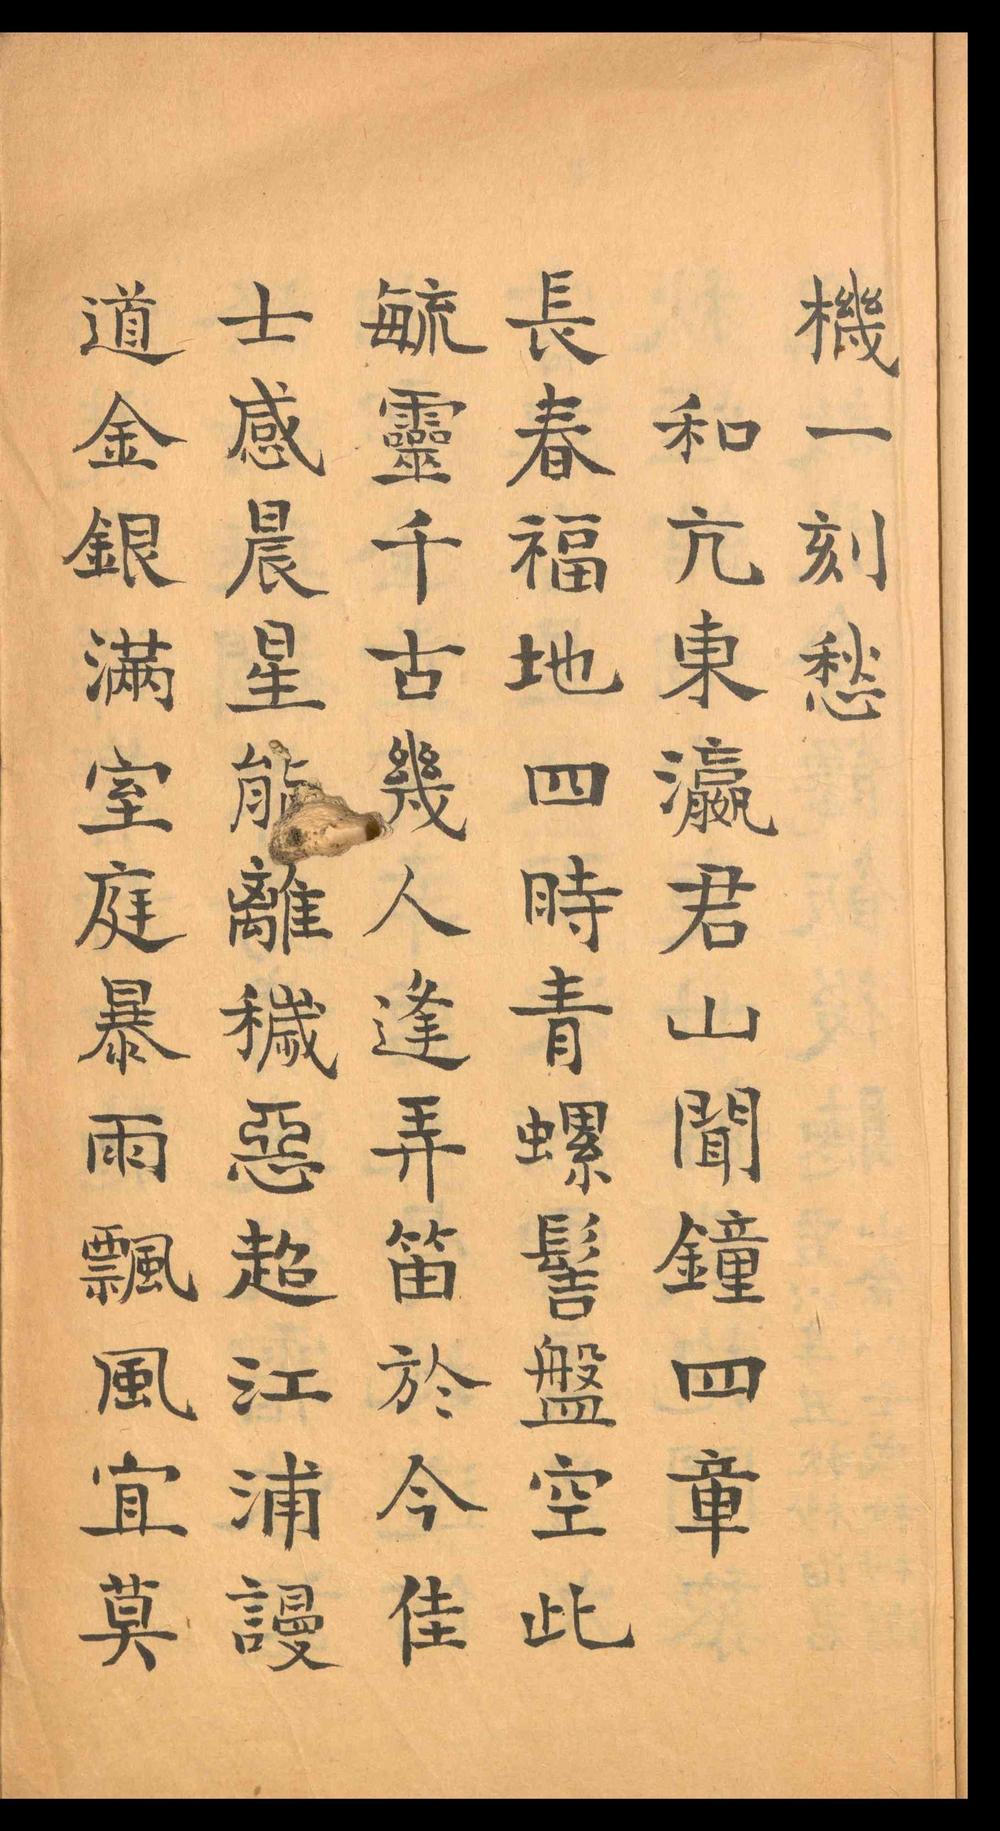 機一刻愁
和亢東瀛君山聞鐘四章
長春福地四時青螺髻盤空此
毓靈千古幾人逢弄笛於今佳
士感晨星能離穢惡超江浦謾
道金銀滿室庭暴雨飄風宜莫